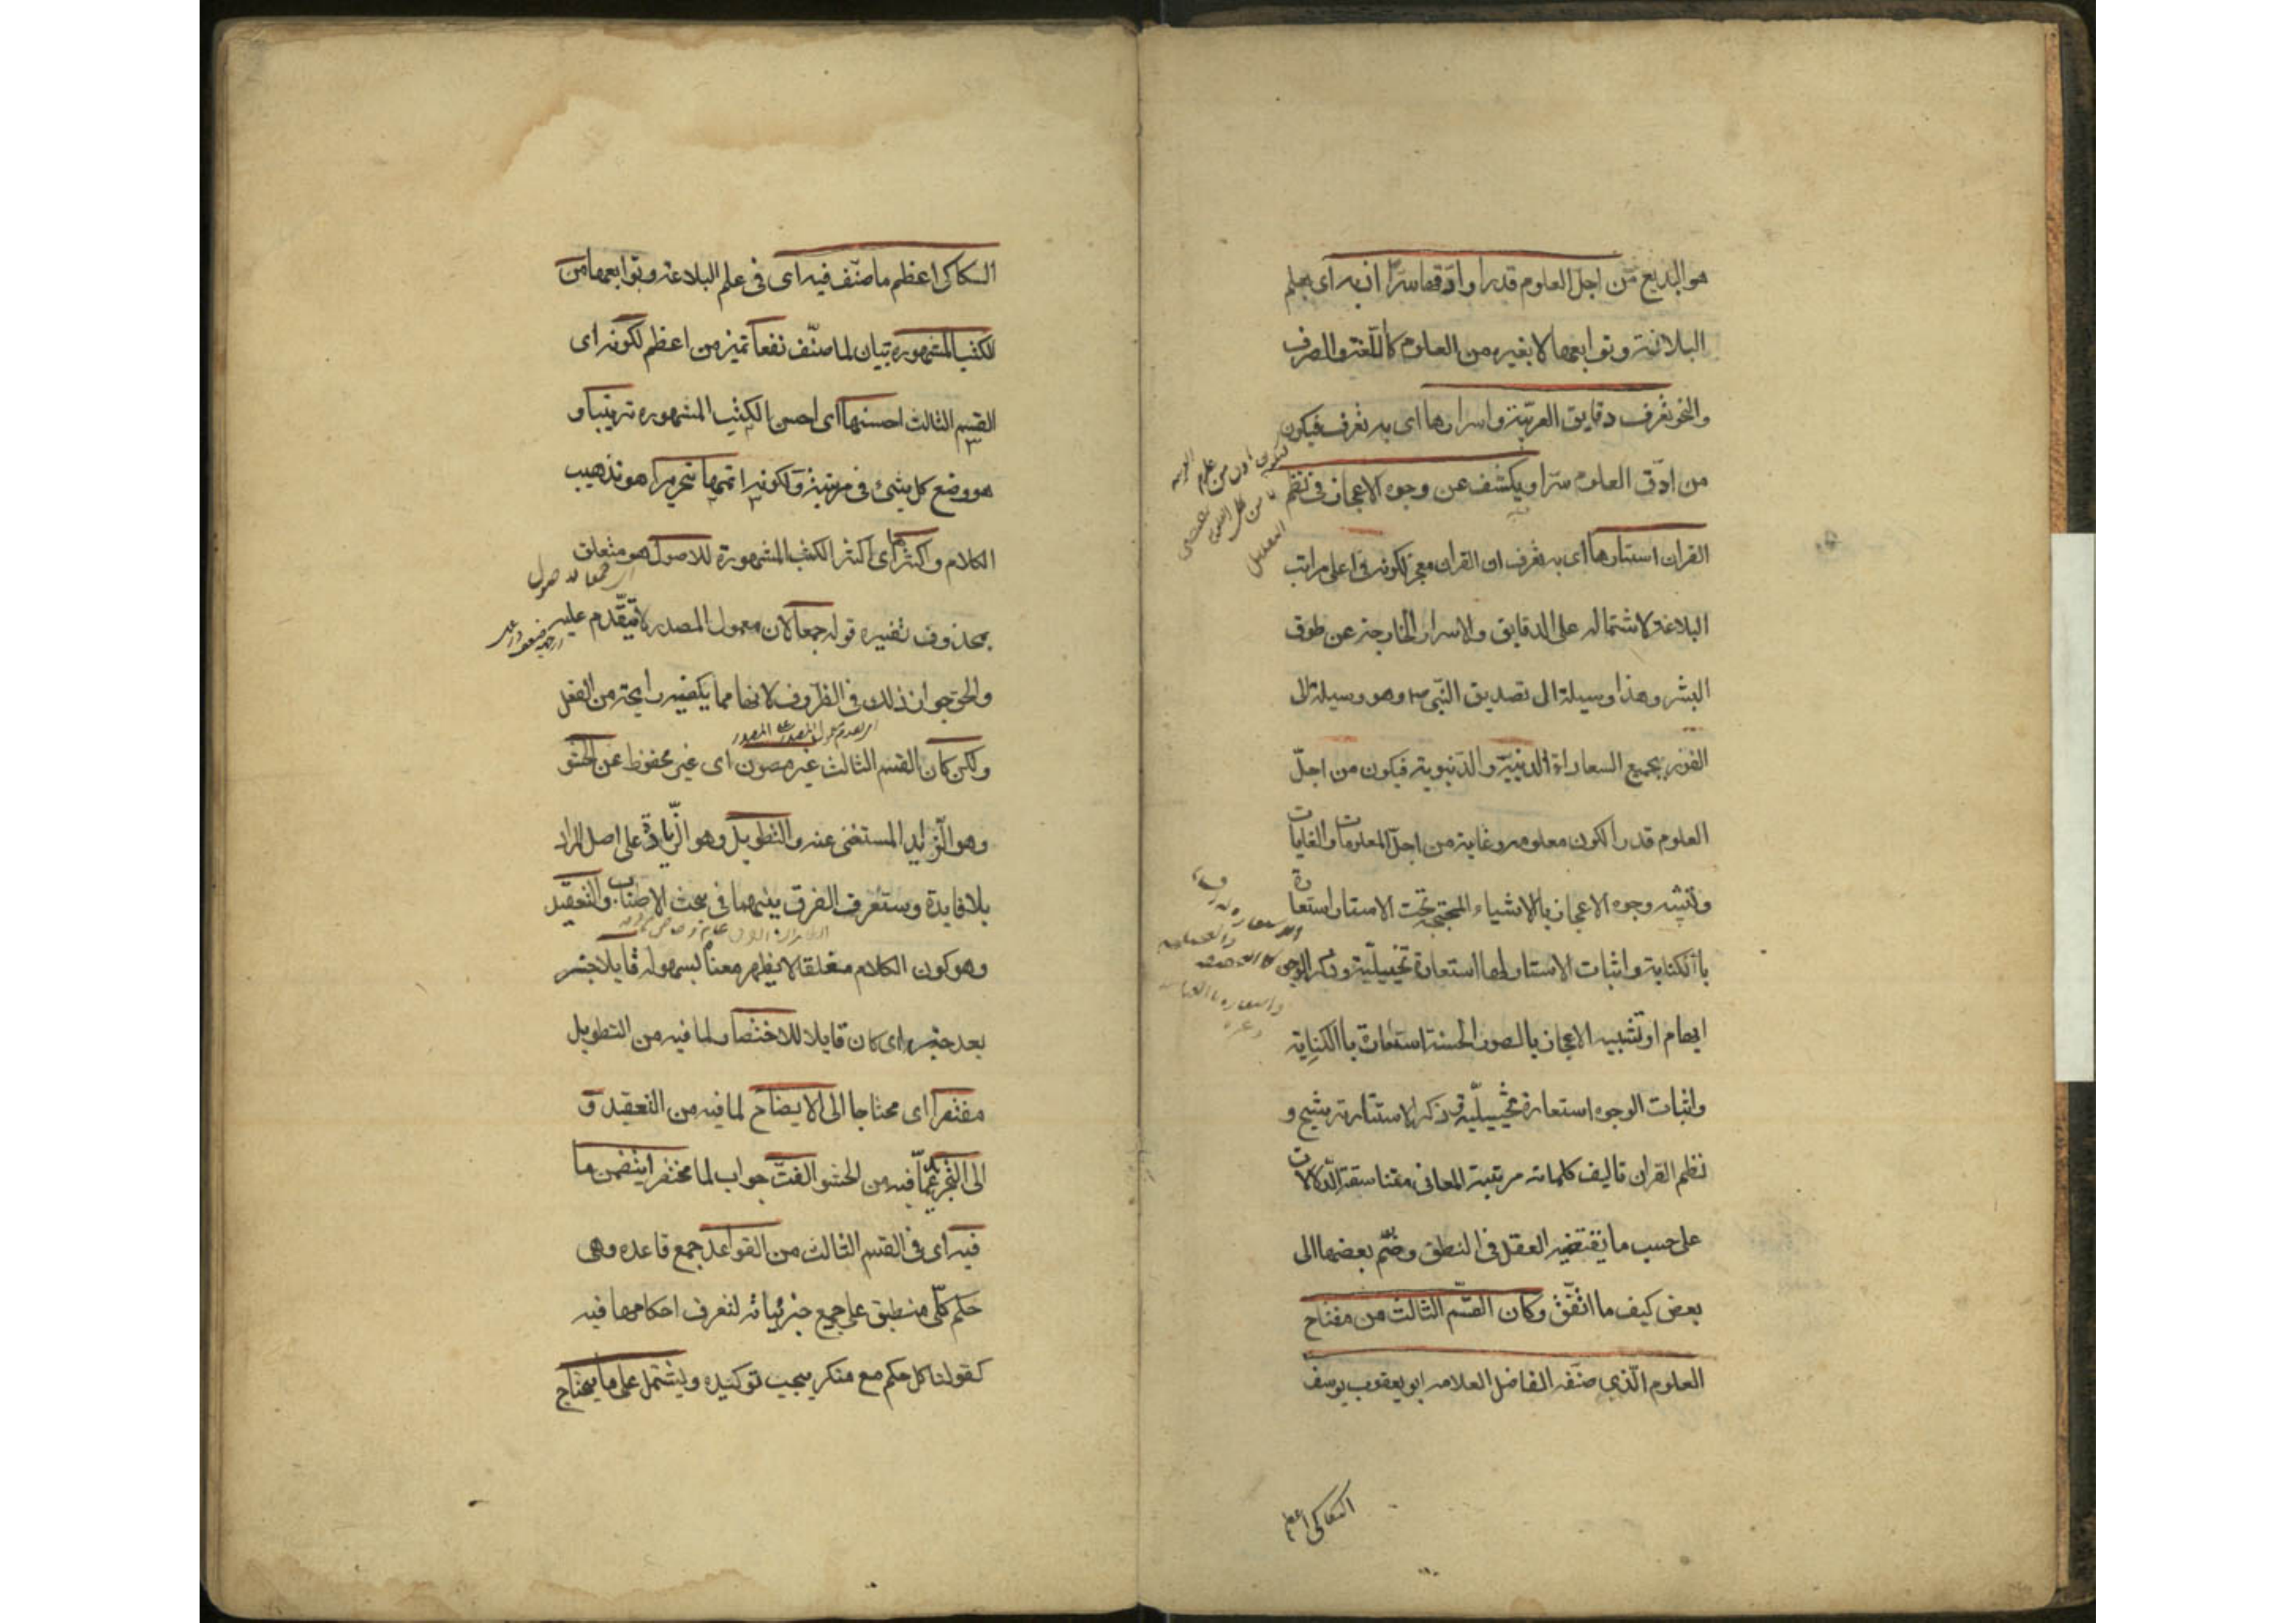 هو البديع من اجل العلوم قدرا وادقها سرا اذ به اى بعلم
البلاغة وتوابعها لا بغيره من العلوم كاللغة والصرف
والنحو تعرف دقايق العربية واسرارها اى به تعرف فيكون
من ادق العلوم سرا ويكشف عن وجوه الاعجاز فى نظم
القران استارها اى به تعرف ان القران معجز لكونه فى اعلى مراتب
البلاغة لاشتماله على الدقايق والاسرار الخارجة عن طوق
البشر وهذا وسيلة الى تصديق النبى ص وهو وسيلة الى
الفوز بجميع السعاداة الدينية والدنيوية فيكون من اجل
العلوم قدرا لكون معلومه وغايته من اجل المعلومات والغايات
وتشبيه وجوه الاعجاز بالاشياء المحتجبة تحت الاستار استعارة
باالكناية واثبات الاستار لها استعارة تخييلية وذكر الوجوه
ايهام او تشبيه الاعجاز بالصور الحسنة استعارة باالكناية
واثبات الوجوه استعارة تخييلية وذكر الاستتار ترشيح و
نظم القران تاليف كلماته مرتبة المعانى متناسقة الدلالات
على حسب ما يقتضيه العقل فى النطق وضم بعضها الى
بعض كيف ما اتفق وكان القسم الثالث من مفتاح
العلوم الذى صنفه الفاضل العلامه ابو يعقوب يوسف
السكاكى اعظم
السكاكى اعظم ما صنف فيه اى فى علم البلاغة وتوابعها من
الكتب المشهوره بيان لما صنف نفعا تميز من اعظم لكونه اى
القسم الثالث احسنها اى احسن الكتب المشهوره ترتيبا و
هو وضع كل شىء فى مرتبته ولكونه اتمها تحريرا هو تهذيب
الكلام واكثرها اى اكثر الكتب المشهورة للاصول هو متعلق
بمحذوف تفسيره قوله جمعا لان معمول المصدر لا يتقدم عليه
والحق جواز ذلك فى الظروف لانها مما يكفيه رايحة من الفعل
ولكن كان القسم الثالث غير مصون اى غير محفوظ عن الحشو
وهو الزايد المستغنى عنه والتطويل وهو الزيادة على اصل المراد
بلا فايدة وستعرف الفرق بينهما فى بحث الاطناب والتعقيد
وهو كون الكلام مغلقا لا يظهر معناه بسهوله قابلا خبر
بعد خبر اى كان قابلا للاختصار لما فيه من التطويل
مفتقرا اى محتاجا الى الايضاح لما فيه من التعقيد و
الى التجريد عما فيه من الحشو الفت جواب لما مختصرا يتضمن ما
فيه اى فى القسم الثالث من القواعد جمع قاعده وهى
حكم كلى منطبق على جميع جزئياته لتعرف احكامها فيه
كقولنا كل حكم مع منكر يجب توكيده ويشتمل على ما يحتاج